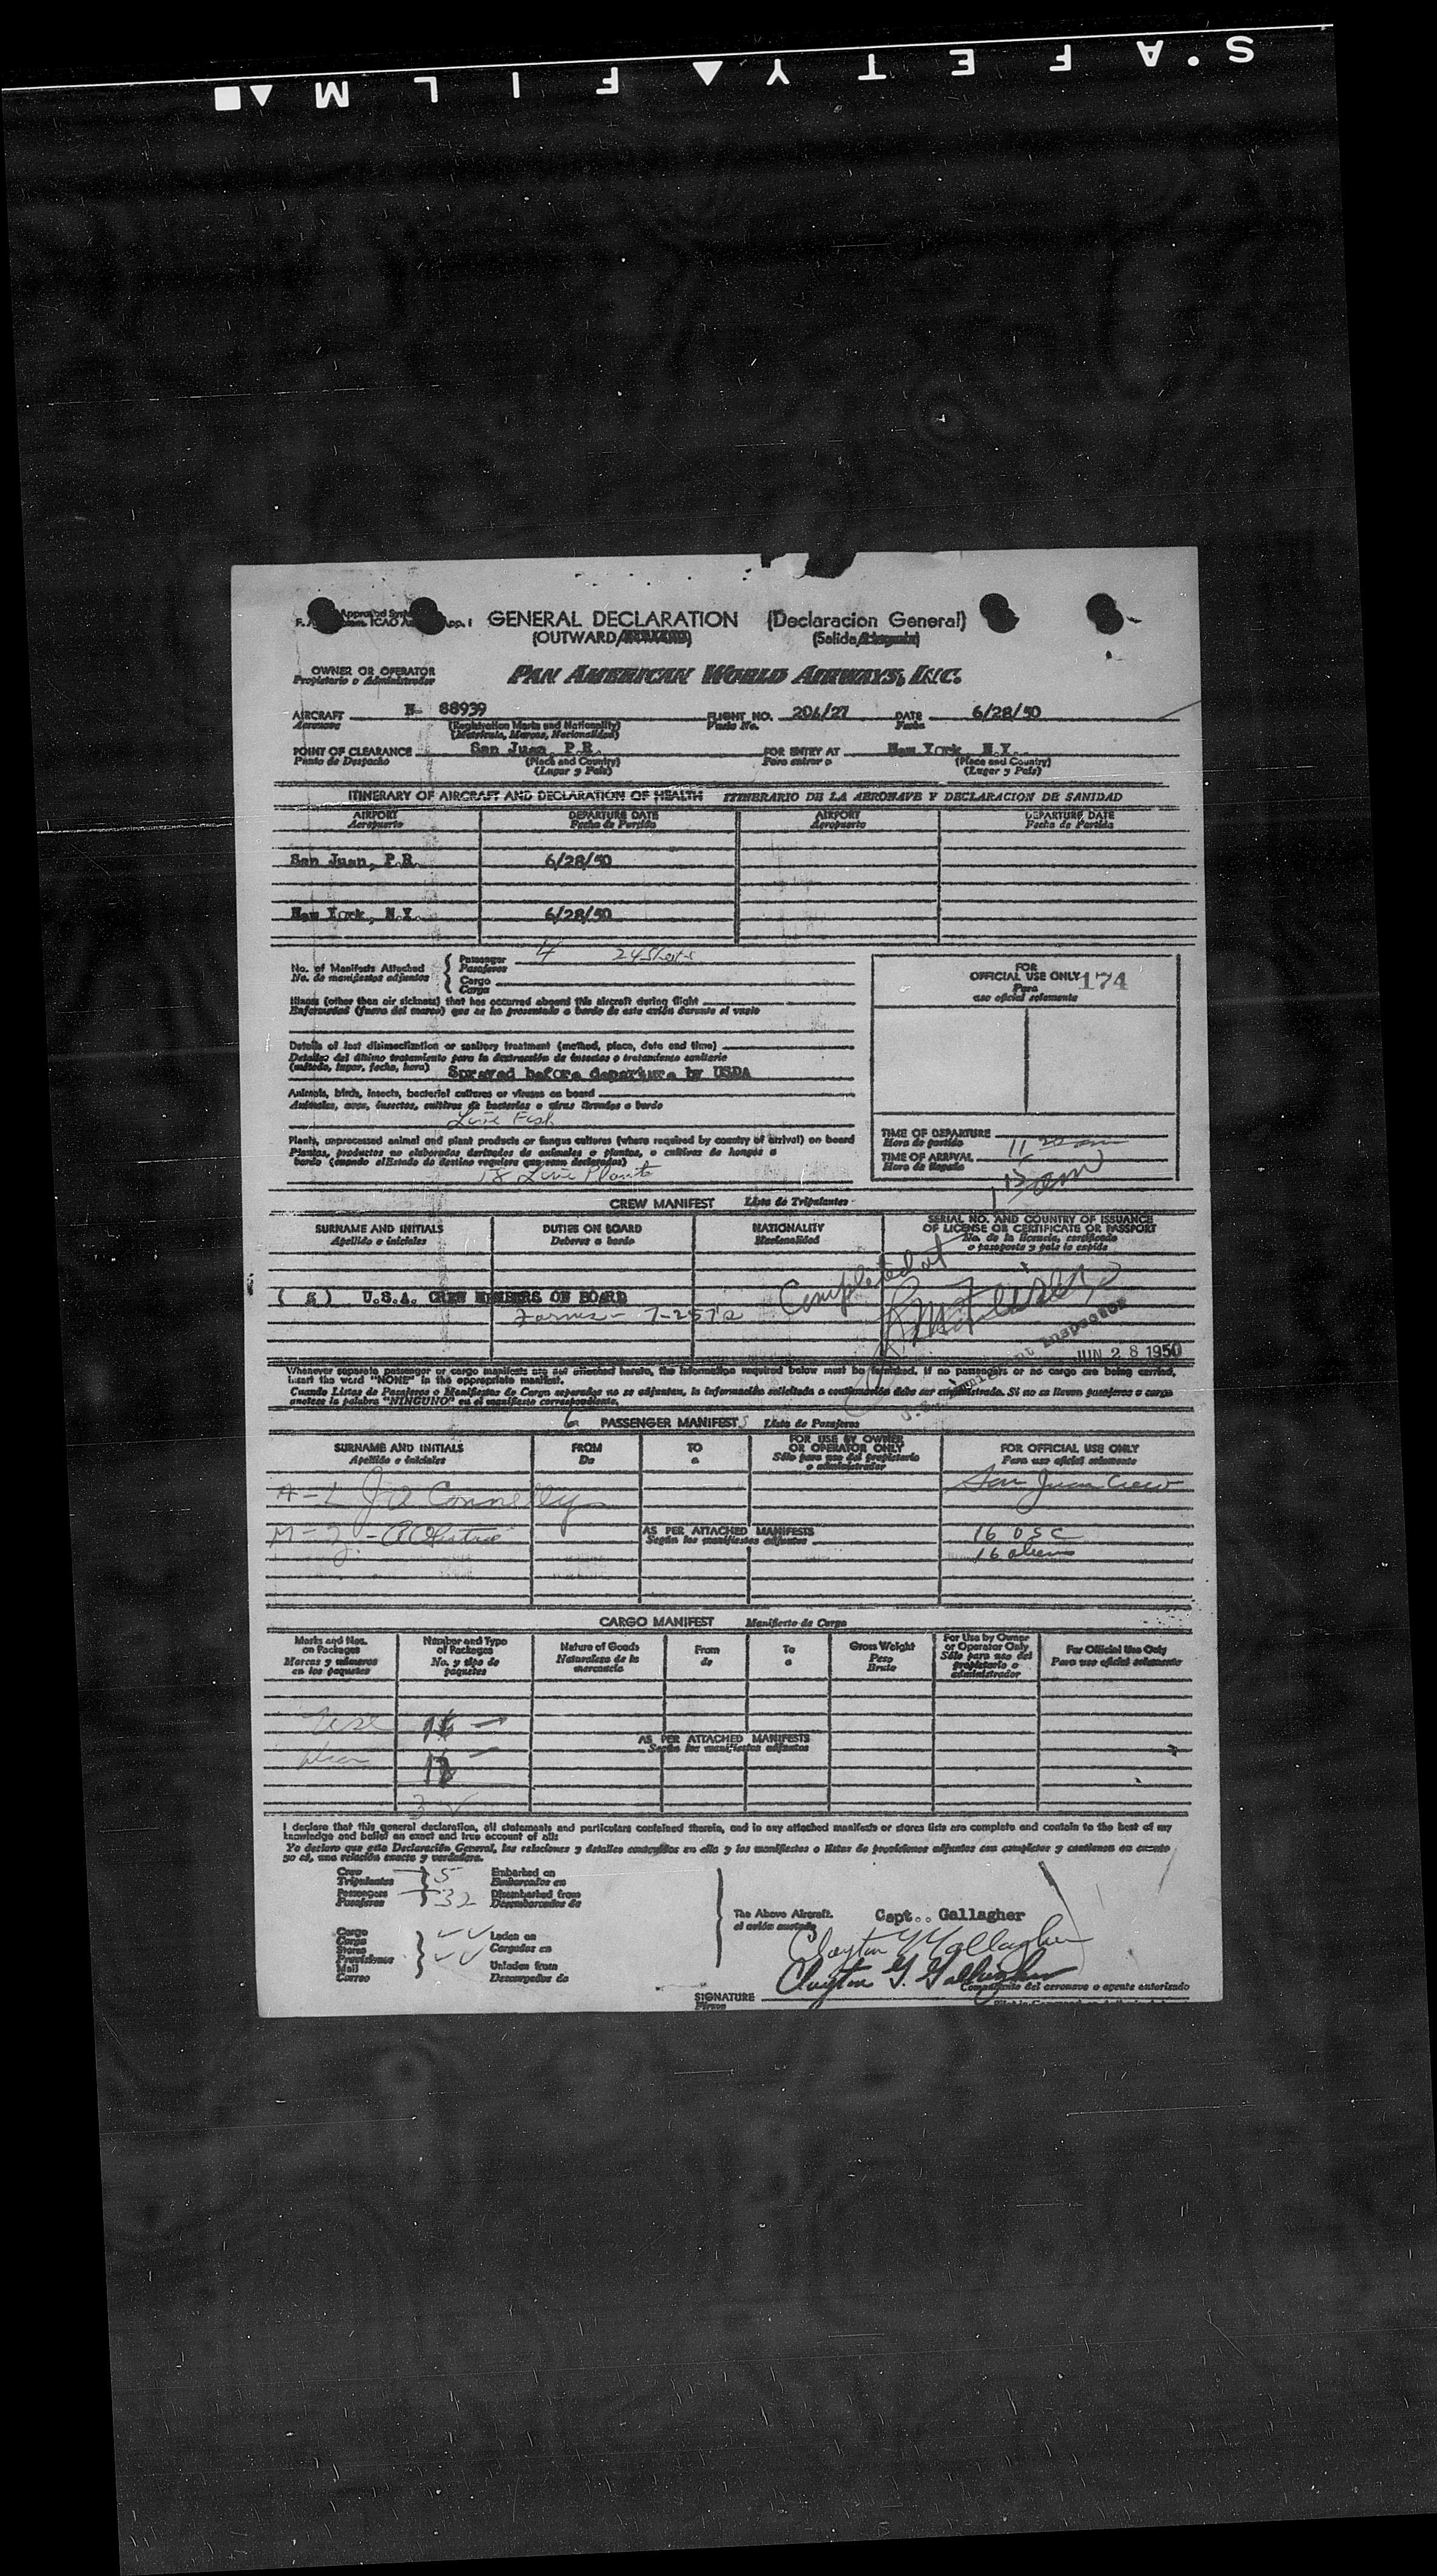 SAFETY FILM
GENERAL DECLARATION (Declaracion General)
(OUTWARD/ (Salida/
OWNER OR OPERATOR
Propietario o Administrador
PAN AMERICAN WORLD AIRWAYS, INC.
AIRCRAFT N- 88939 FLIGHT NO. 206/27 DATE 6/28/50
Aeronave (Registration Marks and Nationality) Vuelo No. Fecha
(Matricula, Marcas, Nacionalidad)
POINT OF CLEARANCE San Juan, P.R. FOR ENTRY AT New York, N.Y.
Punto de Despacho (Place and Country) Para entrar a (Place and Country)
(Lugar y País) (Lugar y País)
ITINERARY OF AIRCRAFT AND DECLARATION OF HEALTH ITINERARIO DE LA AERONAVE Y DECLARACION DE SANIDAD
AIRPORT DEPARTURE DATE AIRPORT DEPARTURE DATE
Aeropuerto Fecha de Partida Aeropuerto Fecha de Partida
San Juan, P.R. 6/28/50
New York, N.Y. 6/28/50
No. of Manifests Attached Passenger 4
No. de manifiestos adjuntos Pasajeros
Cargo
Carga
FOR
OFFICIAL USE ONLY 174
Para
uso oficial solamente
Illness (other than air sickness) that has occurred aboard this aircraft during flight
Enfermedad (fuera del mareo) que se ha presentado a bordo de este avión durante el vuelo
Details of last disinsectization or sanitary treatment (method, place, date and time)
Detalles del último tratamiento para la destrucción de insectos o tratamiento sanitario
(método, lugar, fecha, hora) Sprayed before departure by USDA
Animals, birds, insects, bacterial cultures or viruses on board
Animales, aves, insectos, cultivos de bacterias o virus llevados a bordo
Live Fish
Plants, unprocessed animal and plant products or fungus cultures (where required by country of arrival) on board
Plantas, productos no elaborados derivados de animales o plantas, o cultivos de hongos a
bordo (cuando el Estado de destino requiere que sean declarados)
18 Live Plants
TIME OF DEPARTURE 11 20 am
Hora de partida
TIME OF ARRIVAL
Hora de llegada
CREW MANIFEST Lista de Tripulantes
SURNAME AND INITIALS DUTIES ON BOARD NATIONALITY SERIAL NO. AND COUNTRY OF ISSUANCE
OF LICENSE OR CERTIFICATE OR PASSPORT
Apellido e iniciales Deberes a bordo Nacionalidad No. de la licencia, certificado
o pasaporte y país lo expide
Completed at
( 5 ) U.S.A. CREW MEMBERS ON BOARD
Forms - 7-257a
Inspector
JUN 28 1950
Whenever separate passenger or cargo manifests are not attached hereto, the information required below must be furnished. If no passengers or no cargo are being carried,
insert the word "NONE" in the appropriate manifest.
Cuando Listas de Pasajeros o Manifiestos de Carga separados no se adjuntan, la información solicitada a continuación debe ser suministrada. Si no se llevan pasajeros o carga
anótese la palabra "NINGUNO" en el manifiesto correspondiente.
6 PASSENGER MANIFESTS Lista de Pasajeros
SURNAME AND INITIALS FROM TO FOR USE BY OWNER
OR OPERATOR ONLY FOR OFFICIAL USE ONLY
Apellido e iniciales De a Sólo para uso del propietario
o administrador Para uso oficial solamente
A - L J A Connelly San Juan Crew
AS PER ATTACHED MANIFESTS
Según los manifiestos adjuntos
16 USC
16 aliens
CARGO MANIFEST Manifiesto de Carga
Marks and Nos.
on Packages Number and Type
of Packages Nature of Goods From To Gross Weight For Use by Owner
or Operator Only For Official Use Only
Marcas y números
en los paquetes No. y tipo de
paquetes Naturaleza de la
mercancía de a Peso
Bruto Sólo para uso del
propietario o
administrador Para uso oficial solamente
AS PER ATTACHED MANIFESTS
Según los manifiestos adjuntos
I declare that this general declaration, all statements and particulars contained therein, and in any attached manifests or stores lists are complete and contain to the best of my
knowledge and belief an exact and true account of all:
Yo declaro que esta Declaración General, las relaciones y detalles contenidos en ella y los manifiestos o listas de provisiones adjuntos son completos y contienen en cuanto
yo sé, una relación exacta y verdadera.
Crew 5 Embarked on
Tripulantes Embarcados en
Passengers 32 Disembarked from
Pasajeros Desembarcados de
Cargo
Carga Laden on
Stores Cargados en
Provisiones
Mail Unladen from
Correo Descargados de
The Above Aircraft. Capt.. Gallagher
el avión anotado
Clayton Y Gallagher
Clayton Y. Gallagher
Comandante del aeronave o agente autorizado
SIGNATURE